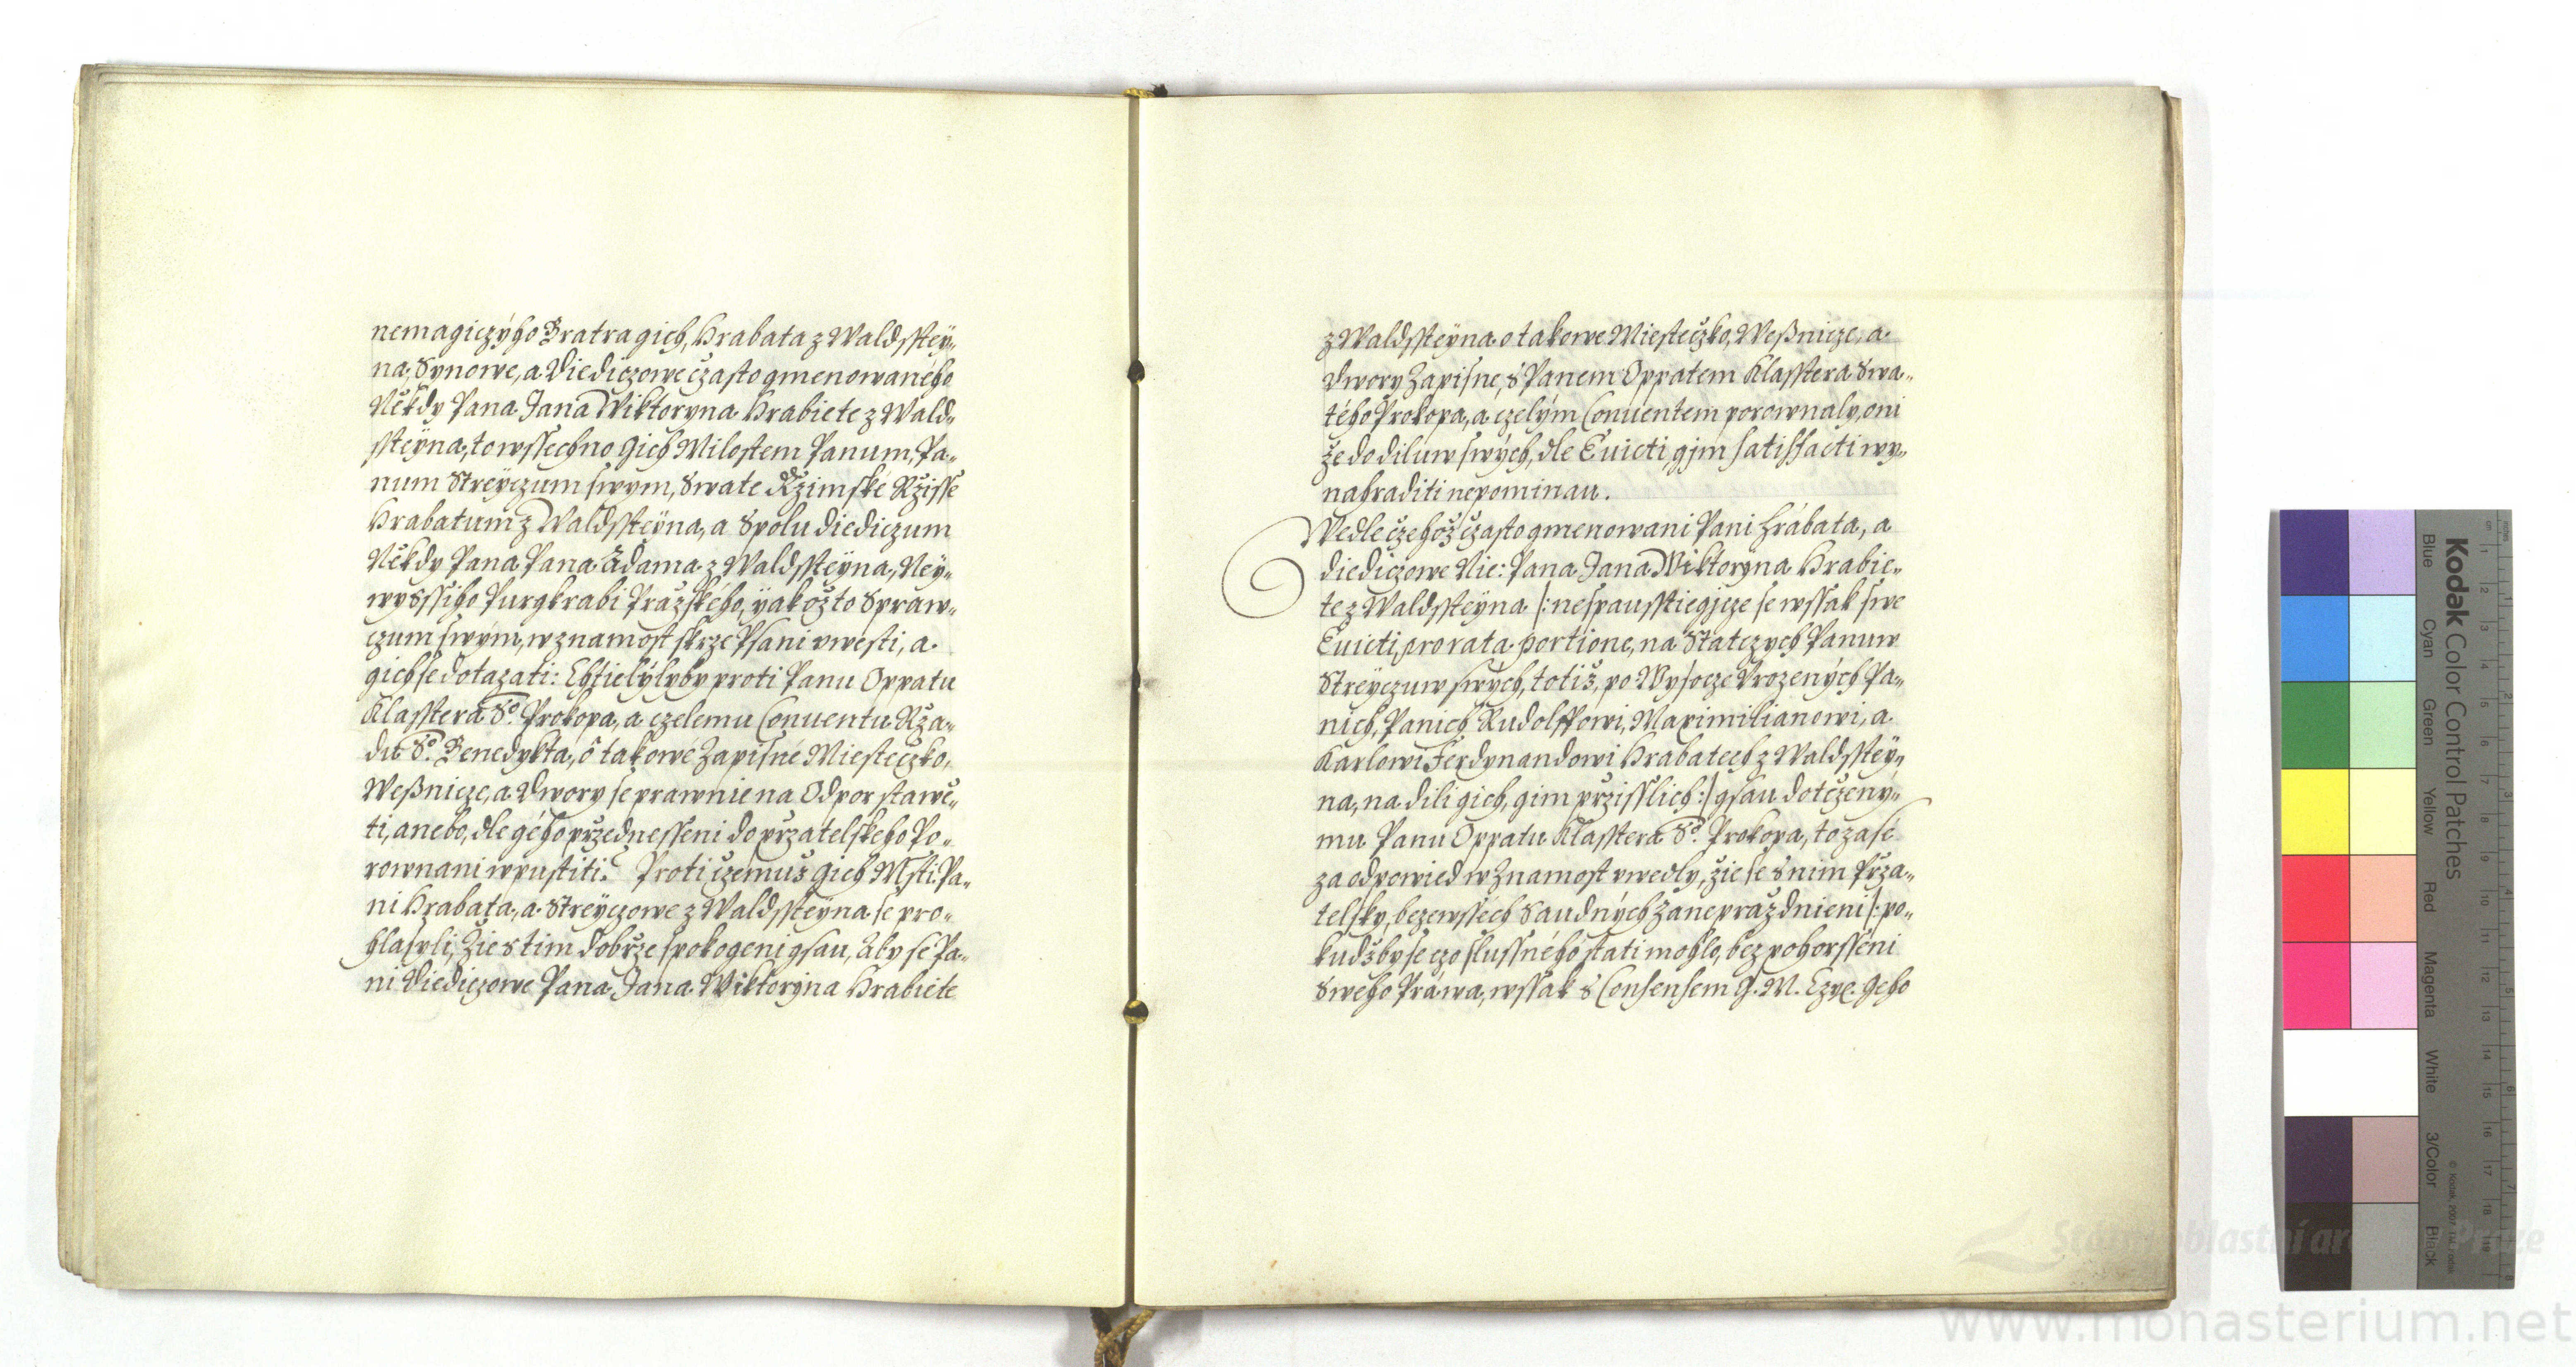 nemagiczýho Bratra gich, Hrabata z Waldssteÿ„
na, Synowe, a Diediczowe często gmenowaného
Někdy Pana Jana Wiktoryna Hrabiete z Wald„
ssteÿna, to wssechno Gich Milostem Panum, Pa„
num Streyczum swym, Swate Ržimské Ržisse
Hrabatum z Waldssteÿna, a Spolu diediczum
Někdy Pana Pana Adama z Waldssteÿna, Neÿ„
wyšssiho Purgkrabi Pražskeho, ÿakožto Spraw„
czum swým, w znamost skrze Psani vwesti, a
gich se dotazati: Chtielýlyby proti Panu Oppatu
Klasstera So. Prokopa, a czelemu Conuentu Rža„
du So. Benedykta, o takowé Zapisné Miesteczko,
Weßnicze, a Dwory se prawnie na Odpor stawě„
ti, anebo, dle gého przednesseni do przatelskeho Po„
rownani wpustiti. Proti czemuž Gich Msti. Pa„
ni Hrabata, a Streÿczowe z Waldssteÿna se pro„
hlasyli, Žie s tim dobrze spokogeni gsau, Aby se Pa„
ni Diediczowe Pana Jana Wiktoryna Hrabiete
z Waldssteÿna o takowe Miesteczko, Weßnicze, a
Dwory Zapisne, s Panem Oppatem Klasstera Swa„
tého Prokopa, a czelým Conuentem porownaly, oni
že do diluw swých, dle Euicti, gjm satisfacti wy„
nahraditi nepominau.
Wedle czehož často gmenowani Pani Hrabata, a
diediczowe Nie: Pana Jana Wiktoryna Hrabie„
te z Waldssteÿna /: nespausstiegjcze se wssak swe
Euicti, pro rata portione, na Statczych Panuw
Streÿczuw swých, totiž, po Wysocze Vrozených Pa„
nich, Panich Rudolffowi, Maximilianowi, a
Karlowi Ferdynandowi Hrabatech z Waldssteÿ„
na, na dili gich, gim przisslich :/ gsau dotczený„
mu Panu Oppatu Klasstera So. Prokopa, to zasé
za odpowied w Znamost vwedly, žie se s nim Prza„
telsky, beze wssech Saudných Zaneprazdnieni /: po„
kudžby se czo slussného stati mohlo, bez pohorsseni
Sweho Práwa, wssak s Consensem G. M. Czýs. Geho
Kodak Color Control Patches
Blue Cyan Green Yellow Red Magenta White 3/Color Black
www.monasterium.net